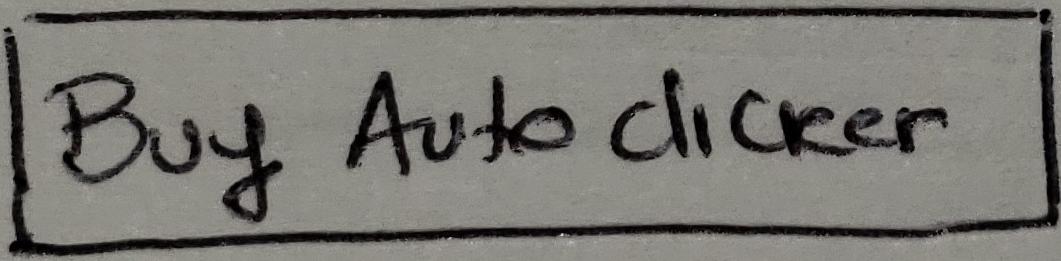 Buy Auto clicker